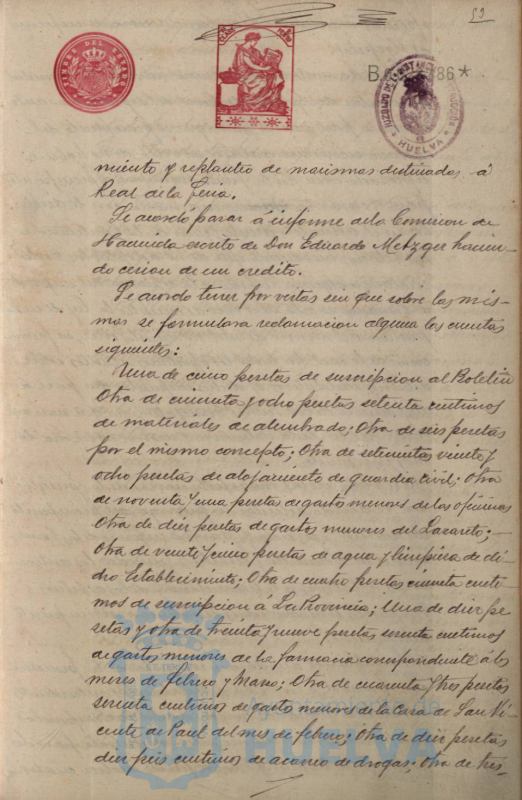 59
TIMBRE DEL ESTADO
HUELVA
miento y replanteo de marismas destinadas á
Real de la Feria.
Se acordó pasar á informe de la Comision de
Hacienda escrito de Don Eduardo Metzger hacien-
do cesion de un credito.
Se acordo tener por vistas sin que sobre las mis-
mas se formulara reclamacion alguna las cuentas
siguientes:
Una de cinco pesetas de suscripcion al Boletin
Otra de cincuenta y ocho pesetas setenta centimos
de materiales de alumbrado; Otra de seis pesetas
por el mismo concepto; Otra de setecientas veinte y
ocho pesetas de alojamiento de guardia civil; Otra
de noventa y una pesetas de gastos menores de las oficinas
Otra de diez pesetas de gastos menores del Lazareto;
Otra de veinte y cinco pesetas de agua y limpieza de di-
cho Establecimiento; Otra de cuatro pesetas cincuenta centi-
mos de suscripcion á La Provincia; Una de diez pe-
setas y otra de treinta y nueve pesetas sesenta centimos
de gastos menores de la farmacia correspondiente á los
meses de febrero y Marzo; Otra de cuarenta y tres pesetas
sesenta centimos de gastos menores de la Casa de San Vi-
cente de Paul del mes de febrero; Otra de diez pesetas
diez y seis centimos de acarreo de drogas; Otra de tres-
HUELVA